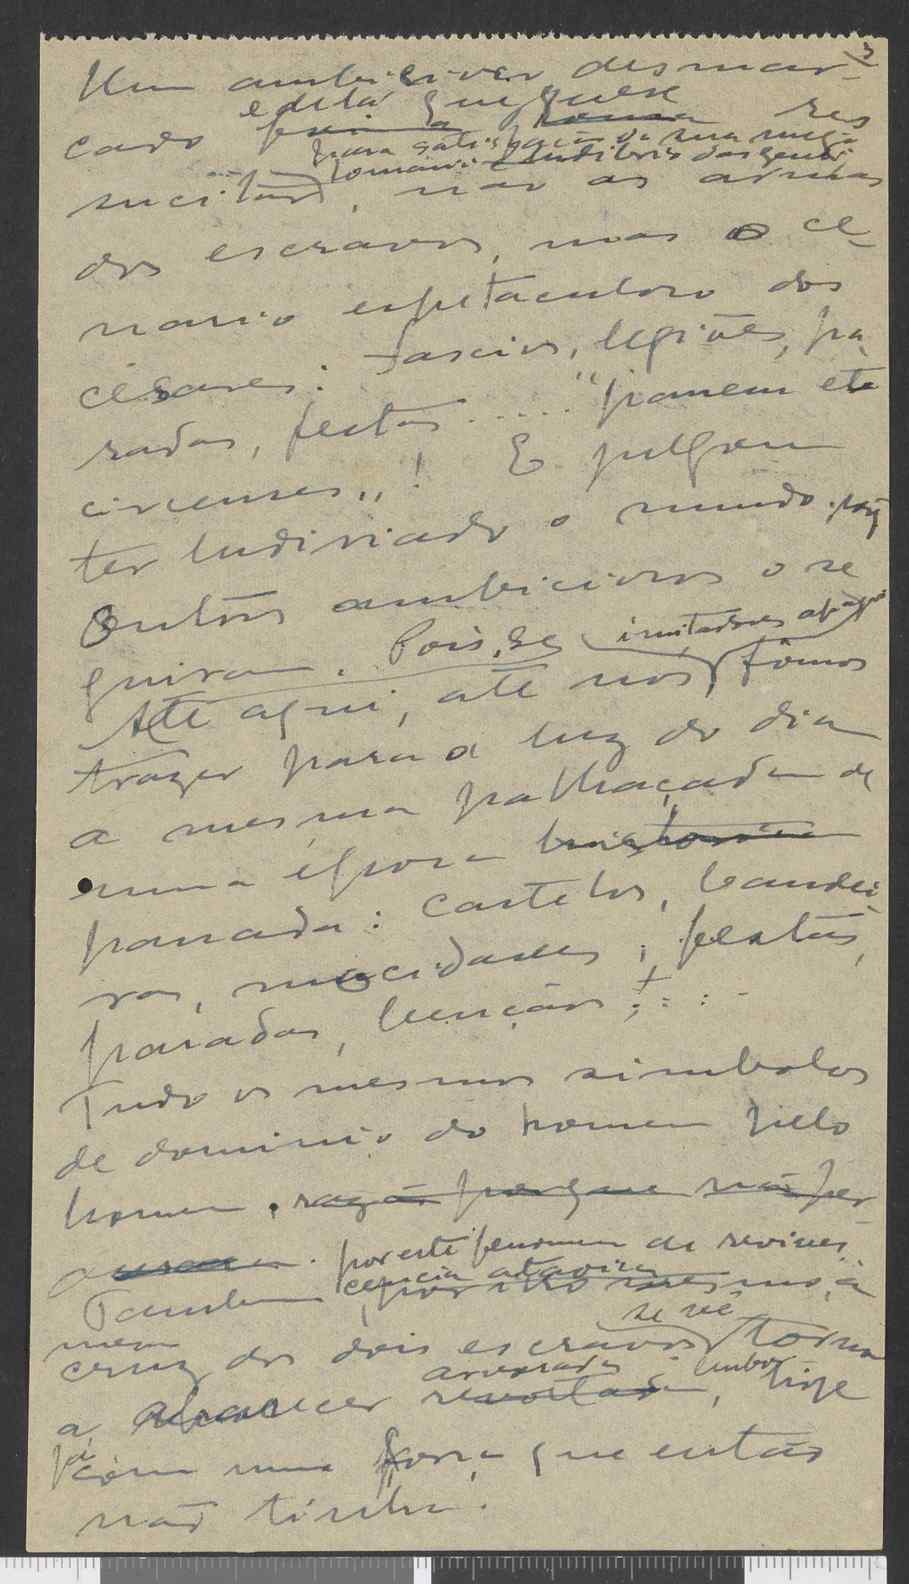 3
Um ambicioso desmar-
edita que quere
cado res
para satisfação da sua mega
lomania e ludibrio das gentes
sucitar, não as armas
dos escravos, mas o ce-
nario espetaculoso dos
césares: fascios, legiões, pa-
radas, festas ..... "panem et
circenses"! E julgou
ter ludiriado o mundo porq
Outros ambiciosos o se
guiram. Pois, se imitadores
Até aqui, até nós, fômos
trazer para a luz do dia
a mesma palhaçada de
uma época historica
passada: castelos, bandei
ras, mocidades, festas,
paradas, bençãos; ...
Tudo os mesmos simbolos
de dominio do homem pelo
homem. razão porque não
por este fenomeno de revives
cencia atavica
Tambem, por isso mesmo, a
se vê
mesma
cruz dos dois escravos torna
arvorada embor
a aparecer revoltada, hoje
já
com uma força que então
não tinha.